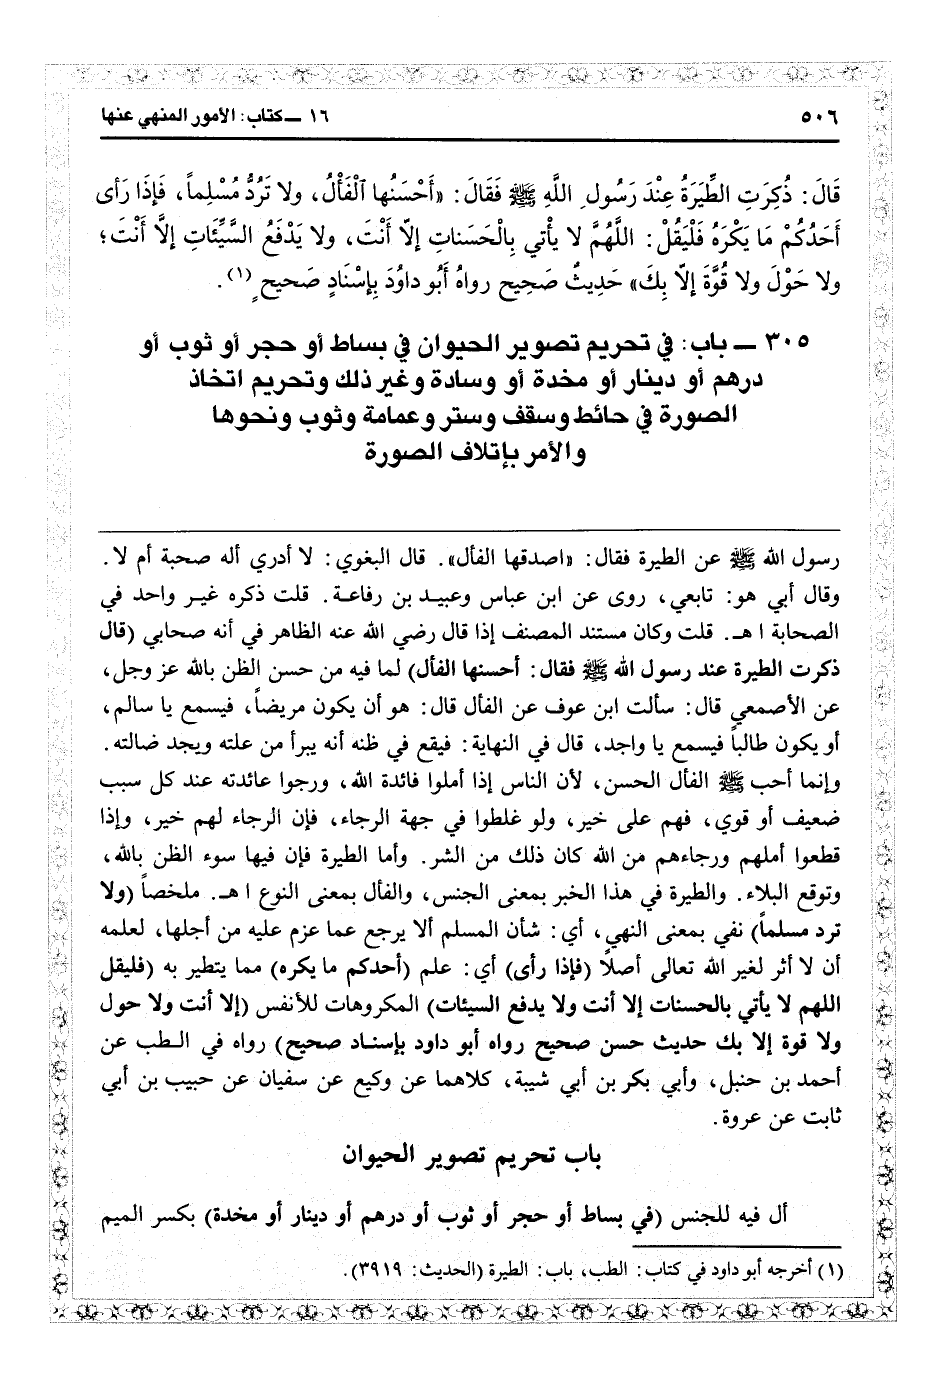 ٥٠٦ ١٦ ــ كتاب: الأمور المنهي عنها
قَالَ: ذُكِرَتِ الطِّيَرَةُ عِنْدَ رَسُولِ اللَّهِ ﷺ فَقَالَ: «أَحْسَنُها الْفَأْلُ، ولا تَرُدُّ مُسْلِماً، فَإِذَا رَأى
أَحَدُكُمْ مَا يَكْرَهُ فَلْيَقُلْ: اللَّهُمَّ لا يَأتي بِالْحَسَناتِ إلاّ أَنْتَ، ولا يَدْفَعُ السَّيِّئَاتِ إلاّ أَنْتَ؛
ولا حَوْلَ ولا قُوَّةَ إلاّ بِكَ» حَدِيثٌ صَحِيح رواهُ أَبُو داوُدَ بِإِسْنَادٍ صَحيحٍ(١).
٣٠٥ ــ باب: في تحريم تصوير الحيوان في بساط أو حجر أو ثوب أو
درهم أو دينار أو مخدة أو وسادة وغير ذلك وتحريم اتخاذ
الصورة في حائط وسقف وستر وعمامة وثوب ونحوها
والأمر بإتلاف الصورة
رسول الله ﷺ عن الطيرة فقال: «اصدقها الفأل». قال البغوي: لا أدري أله صحبة أم لا.
وقال أبي هو: تابعي، روى عن ابن عباس وعبيد بن رفاعة. قلت ذكره غير واحد في
الصحابة ا هـ. قلت وكان مستند المصنف إذا قال رضي الله عنه الظاهر في أنه صحابي (قال
ذكرت الطيرة عند رسول الله ﷺ فقال: أحسنها الفأل) لما فيه من حسن الظن بالله عز وجل،
عن الأصمعي قال: سألت ابن عوف عن الفأل قال: هو أن يكون مريضاً، فيسمع يا سالم،
أو يكون طالباً فيسمع يا واجد، قال في النهاية: فيقع في ظنه أنه يبرأ من علته ويجد ضالته.
وإنما أحب ﷺ الفأل الحسن، لأن الناس إذا أملوا فائدة الله، ورجوا عائدته عند كل سبب
ضعيف أو قوي، فهم على خير، ولو غلطوا في جهة الرجاء، فإن الرجاء لهم خير، وإذا
قطعوا أملهم ورجاءهم من الله كان ذلك من الشر. وأما الطيرة فإن فيها سوء الظن بالله،
وتوقع البلاء. والطيرة في هذا الخبر بمعنى الجنس، والفأل بمعنى النوع ا هـ. ملخصاً (ولا
ترد مسلماً) نفي بمعنى النهي، أي: شأن المسلم ألا يرجع عما عزم عليه من أجلها، لعلمه
أن لا أثر لغير الله تعالى أصلاً (فإذا رأى) أي: علم (أحدكم ما يكره) مما يتطير به (فليقل
اللهم لا يأتي بالحسنات إلا أنت ولا يدفع السيئات) المكروهات للأنفس (إلا أنت ولا حول
ولا قوة إلا بك حديث حسن صحيح رواه أبو داود بإسناد صحيح) رواه في الطب عن
أحمد بن حنبل، وأبي بكر بن أبي شيبة، كلاهما عن وكيع عن سفيان عن حبيب بن أبي
ثابت عن عروة.
باب تحريم تصوير الحيوان
أل فيه للجنس (في بساط أو حجر أو ثوب أو درهم أو دينار أو مخدة) بكسر الميم
(١) أخرجه أبو داود في كتاب: الطب، باب: الطيرة (الحديث: ٣٩١٩).